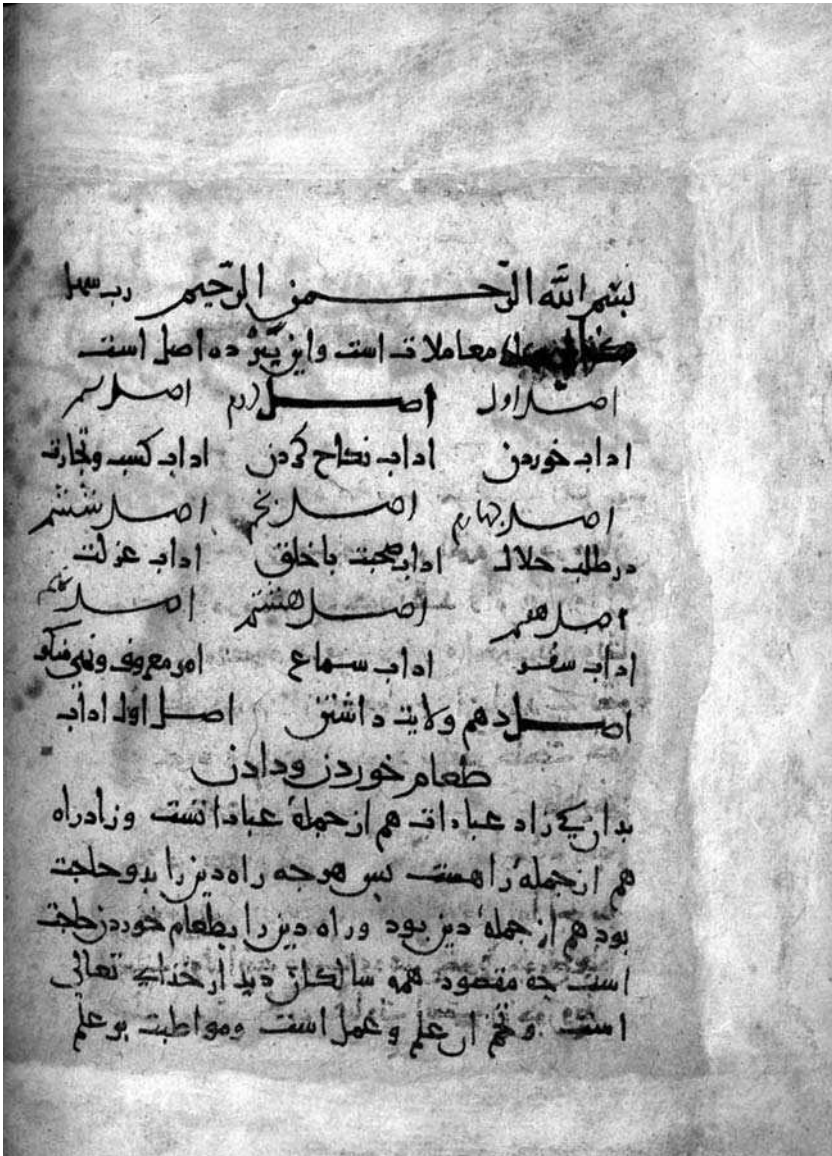 بسم الله الرحمن الرحیم رب سهل
معاملات است واین نیز ده اصل است
اصل اول اصل دوم اصل سم
اداب خوردن اداب نکاح کردن اداب کسب وتجارت
اصل چهارم اصل پنجم اصل ششم
در طلب حلال اداب صحبت باخلق اداب عزلت
اصل هفتم اصل هشتم اصل نهم
اداب سفر اداب سماع امر معروف ونهی منکر
اصل دهم ولایت داشتن اصل اول اداب
طعام خوردن ودادن
بدان کی راه عبادات هم از جملهٔ عباداتست وزاد راه
هم از جملهٔ راهست بس هرجه راه دین را بدو حاجت
بود هم از جملهٔ دین بود وراه دین را بطعام خوردن حاجت
است جه مقصود همه سالکان دیدار خدای تعالی
است وتخم ان علم وعمل است ومواظبت بر علم